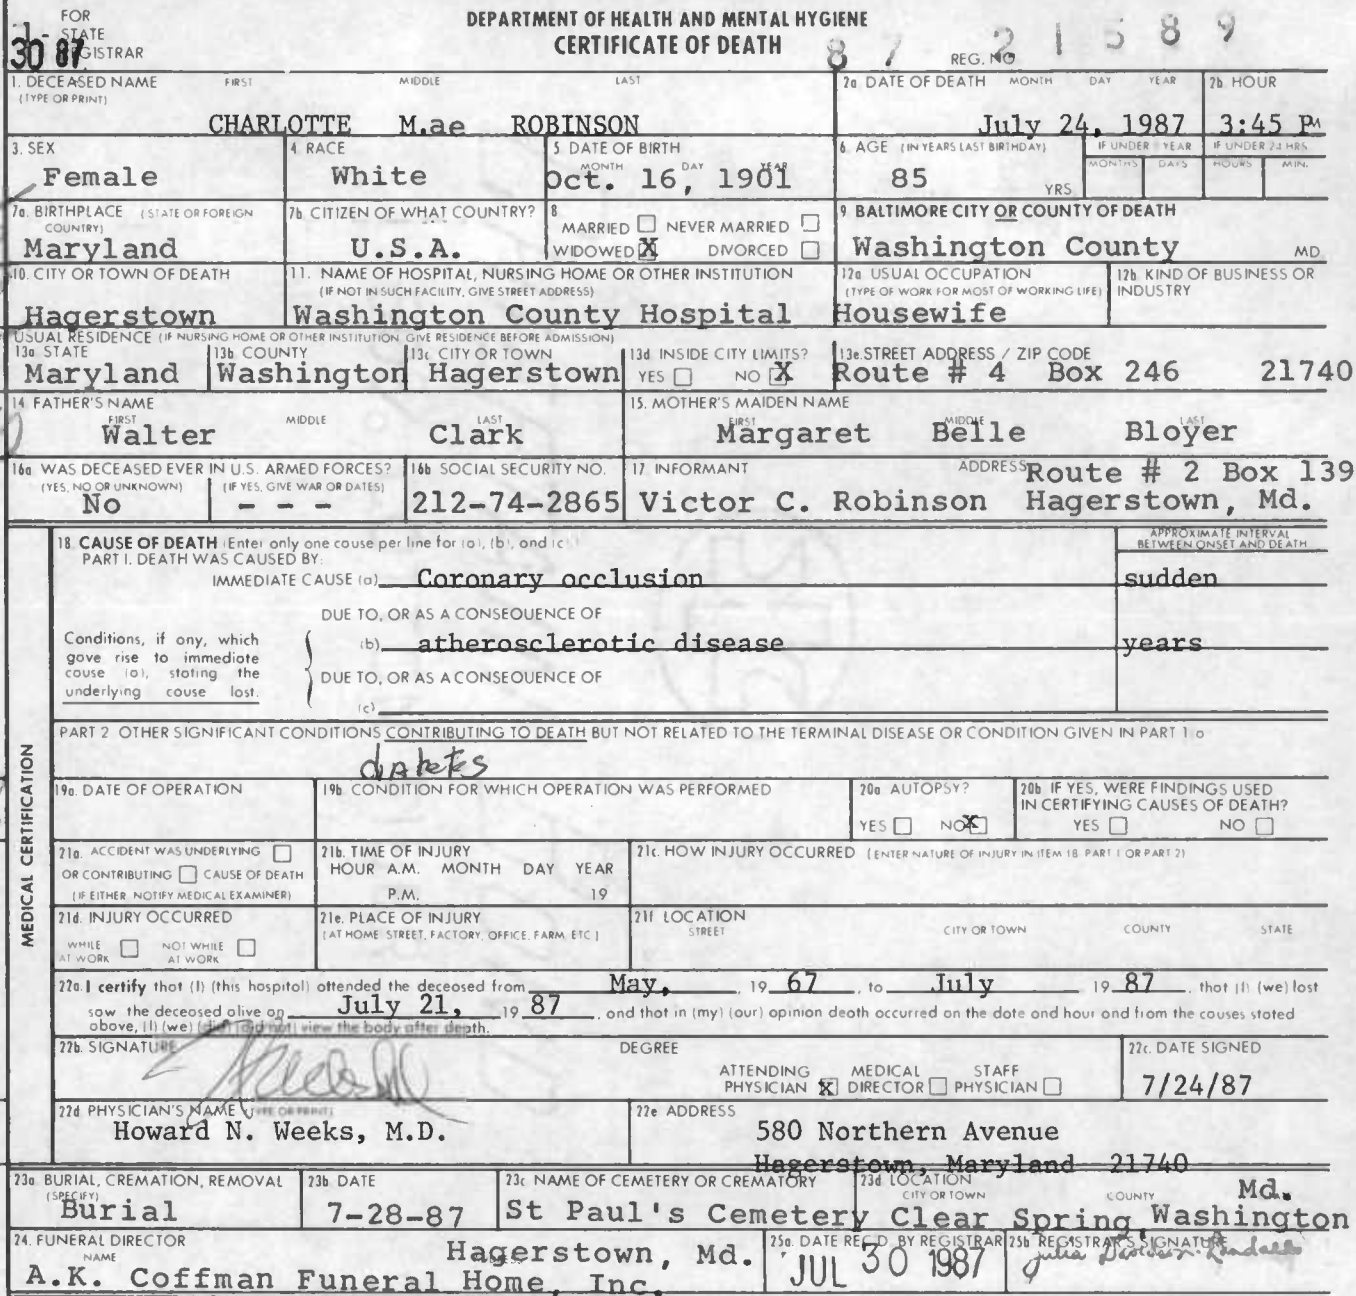 FOR
STATE
REGISTRAR
30 87
DEPARTMENT OF HEALTH AND MENTAL HYGIENE
CERTIFICATE OF DEATH
87 21589
REG. NO
1. DECEASED NAME FIRST MIDDLE LAST
(TYPE OR PRINT)
CHARLOTTE M.ae ROBINSON
2a DATE OF DEATH MONTH DAY YEAR
July 24, 1987
2b HOUR
3:45 PM
3. SEX
Female
4. RACE
White
5. DATE OF BIRTH
MONTH DAY YEAR
Oct. 16, 1901
6. AGE (IN YEARS LAST BIRTHDAY)
85 YRS
IF UNDER 1 YEAR
MONTHS DAYS
IF UNDER 24 HRS
HOURS MIN.
7a. BIRTHPLACE (STATE OR FOREIGN
COUNTRY)
Maryland
7b. CITIZEN OF WHAT COUNTRY?
U.S.A.
8
MARRIED NEVER MARRIED
WIDOWED X DIVORCED
9. BALTIMORE CITY OR COUNTY OF DEATH
Washington County MD.
10. CITY OR TOWN OF DEATH
Hagerstown
11. NAME OF HOSPITAL, NURSING HOME OR OTHER INSTITUTION
(IF NOT IN SUCH FACILITY, GIVE STREET ADDRESS)
Washington County Hospital
12a. USUAL OCCUPATION
(TYPE OF WORK FOR MOST OF WORKING LIFE)
Housewife
12b. KIND OF BUSINESS OR
INDUSTRY
USUAL RESIDENCE (IF NURSING HOME OR OTHER INSTITUTION GIVE RESIDENCE BEFORE ADMISSION)
13a STATE
Maryland
13b COUNTY
Washington
13c CITY OR TOWN
Hagerstown
13d INSIDE CITY LIMITS?
YES NO X
13e. STREET ADDRESS / ZIP CODE
Route # 4 Box 246 21740
14 FATHER'S NAME
FIRST MIDDLE LAST
Walter Clark
15. MOTHER'S MAIDEN NAME
FIRST MIDDLE LAST
Margaret Belle Bloyer
16a WAS DECEASED EVER IN U.S. ARMED FORCES?
(YES, NO OR UNKNOWN) (IF YES, GIVE WAR OR DATES)
No - - -
16b SOCIAL SECURITY NO.
212-74-2865
17. INFORMANT ADDRESS
Route # 2 Box 139
Victor C. Robinson Hagerstown, Md.
MEDICAL CERTIFICATION
18. CAUSE OF DEATH (Enter only one cause per line for (a), (b), and (c)
PART I. DEATH WAS CAUSED BY:
APPROXIMATE INTERVAL
BETWEEN ONSET AND DEATH
IMMEDIATE CAUSE (a) Coronary occlusion sudden
DUE TO, OR AS A CONSEQUENCE OF
Conditions, if any, which
gave rise to immediate
cause (a), stating the
underlying cause last.
(b) atherosclerotic disease years
DUE TO, OR AS A CONSEQUENCE OF
(c)
PART 2 OTHER SIGNIFICANT CONDITIONS CONTRIBUTING TO DEATH BUT NOT RELATED TO THE TERMINAL DISEASE OR CONDITION GIVEN IN PART 1 a
diabetes
19a. DATE OF OPERATION
19b. CONDITION FOR WHICH OPERATION WAS PERFORMED
20a AUTOPSY?
YES NO X
20b IF YES, WERE FINDINGS USED
IN CERTIFYING CAUSES OF DEATH?
YES NO
21a. ACCIDENT WAS UNDERLYING
OR CONTRIBUTING CAUSE OF DEATH
(IF EITHER NOTIFY MEDICAL EXAMINER)
21b. TIME OF INJURY
HOUR A.M. MONTH DAY YEAR
P.M. 19
21c. HOW INJURY OCCURRED (ENTER NATURE OF INJURY IN ITEM 18 PART 1 OR PART 2)
21d. INJURY OCCURRED
WHILE AT WORK NOT WHILE AT WORK
21e. PLACE OF INJURY
(AT HOME STREET, FACTORY, OFFICE, FARM, ETC)
21f LOCATION
STREET CITY OR TOWN COUNTY STATE
22a. I certify that (I) (this hospital) attended the deceased from May, 19 67, to July 19 87, that (I) (we) last
saw the deceased alive on July 21, 19 87, and that in (my) (our) opinion death occurred on the date and hour and from the causes stated
above, (I) (we) (did) (did not) view the body after death.
22b. SIGNATURE
DEGREE
ATTENDING PHYSICIAN X MEDICAL DIRECTOR STAFF PHYSICIAN
22c. DATE SIGNED
7/24/87
22d PHYSICIAN'S NAME (TYPE OR PRINT)
Howard N. Weeks, M.D.
22e ADDRESS
580 Northern Avenue
Hagerstown, Maryland 21740
23a BURIAL, CREMATION, REMOVAL
(SPECIFY)
Burial
23b DATE
7-28-87
23c NAME OF CEMETERY OR CREMATORY
St Paul's Cemetery
23d LOCATION
CITY OR TOWN COUNTY Md.
Clear Spring, Washington
24. FUNERAL DIRECTOR
NAME
Hagerstown, Md.
A.K. Coffman Funeral Home, Inc.
25a. DATE REC'D. BY REGISTRAR
JUL 30 1987
25b REGISTRAR'S SIGNATURE
Julia Davidson-Randall